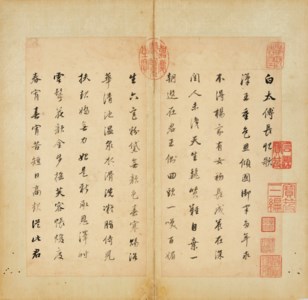 白太傅長恨歌
漢王重色思傾國御宇多年求
不得楊家有女初長成養在深
閨人未識天生麗質難自棄一
朝選在君王側回一笑百媚
生六宮粉黛無顏色春寒賜浴
華清池溫泉水滑洗凝脂侍兒
扶起嬌無力始是新承恩澤時
雲鬢花顏金步搖芙蓉帳暖度
春宵春宵苦短日高起從此君